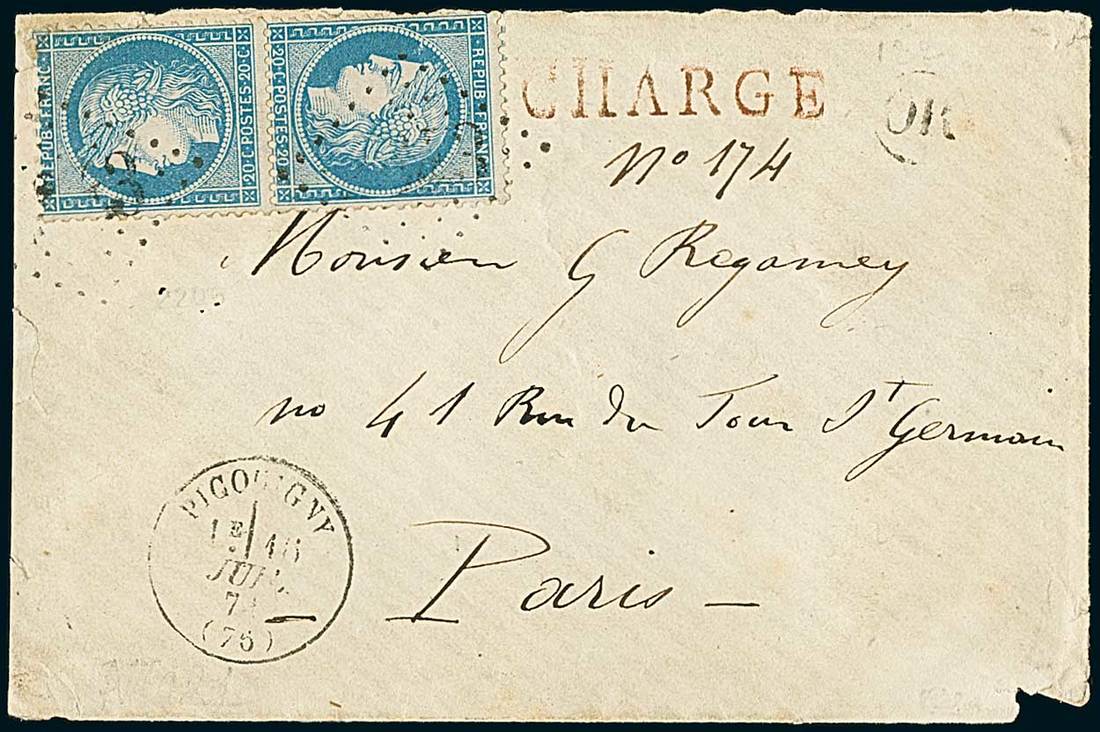 REPUB·FRANC·
20·C·POSTES·20·C
REPUB·FRANC·
20·C·POSTES·20·C
CHARGE
OR
No 174
Monsieur G Regamey
no 41 Rue du Four St Germain
Paris
PICQUIGNY
1E
JUIL.
(76)